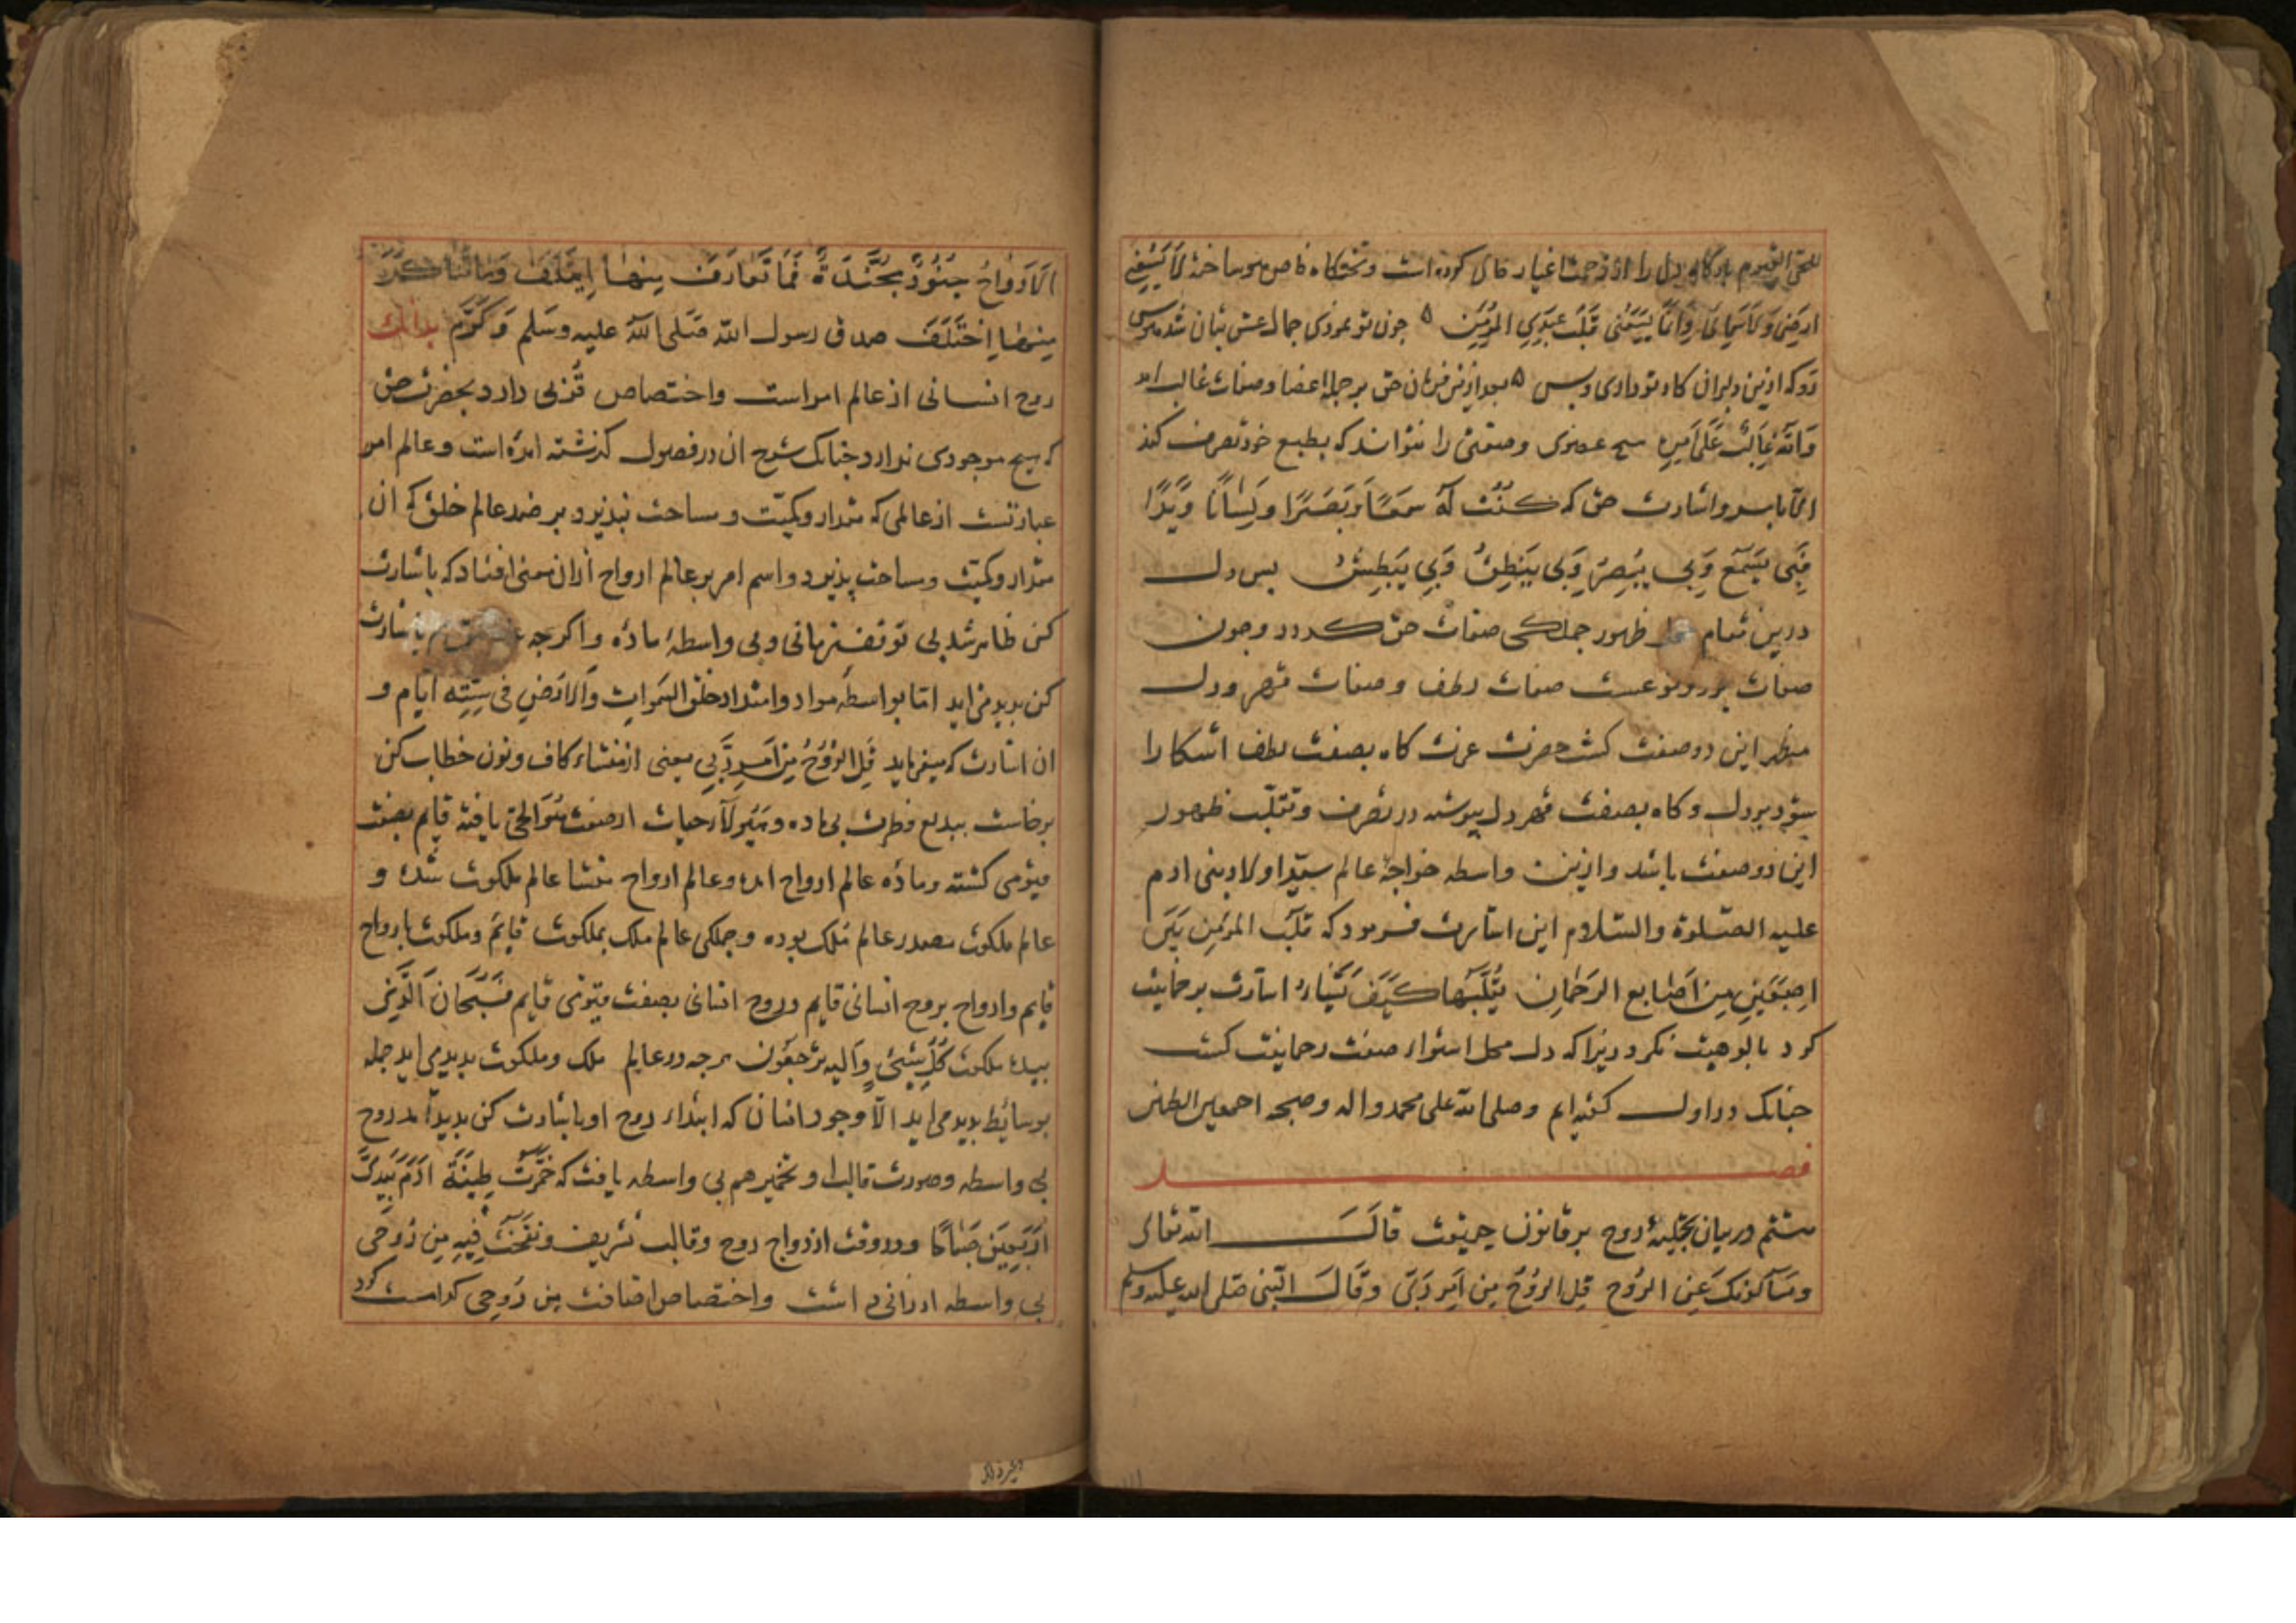 للحی القیوم بارگاه دل را از زحمت اغیار خالی کرده است و تختگاه خاص خود ساخته لا یسعنی
ارضی ولا سمائی وانما یسعنی قلب عبدی المؤمن ه چون تو نمودی جمال عشق بتان شد هوس
رو که ازین دلبران کار تو داری و بس ه بعد ازین فرمان حق بر جمله اعضا و صفات غالب اید
والله غالب علی امره هیچ عضوی و صفتی را نتواند که بطبع خود تصرف کند
الا بامر و اشارت حق که کنت له سمعا وبصرا ولسانا ویدا
فبی یسمع وبی یبصر وبی ینطق وبی یبطش پس دل
درین مقام محل ظهور جملکی صفات حق کردد و چون
صفات بر دو نوعست صفات لطف و صفات قهر و دل
مظهر این دو صفت کشت حضرت عزت کاه بصفت لطف اشکارا
شود بر دل و کاه بصفت قهر دل پیوسته در تصرف و تقلب ظهور
این دو صفت باشد و ازین واسطه خواجهٔ عالم سید اولاد بنی ادم
علیه الصلوة والسلام این اشارت فرمود که قلب المؤمن بین
اصبعین من اصابع الرحمان یقلبها کیف یشاء اشارت برحمانیت
کرد بالوهیت نکرد زیرا که دل محل استواء صفت رحمانیت کشت
جنانک در اول کفته ایم وصلی الله علی محمد واله وصحبه اجمعین
فصل
هشتم در بیان تجلیهٔ روح بر قانون حقیقت قال الله تعالی
ویسألونک عن الروح قل الروح من امر ربی وقال النبی صلی الله علیه وسلم
الارواح جنود مجندة فما تعارف منها ایتلف وما تناکر
منها اختلف صدق رسول الله صلی الله علیه وسلم وکرم بدانک
روح انسانی از عالم امر است و اختصاص قربی دارد بحضرت حق
که هیچ موجودی ندارد جنانک شرح ان در فصول کذشته امده است و عالم امر
عبارتست از عالمی که مقدار و کمیت و مساحت نپذیرد بر ضد عالم خلق که ان
مقدار و کمیت و مساحت پذیرد و اسم امر بر عالم ارواح ازان معنی افتاد که باشارت
کن ظاهر شد بی توقف زمانی و بی واسطهٔ ماده و اکرجه باشارت
کن بدید می اید اما بواسطهٔ مواد و امتداد خلق السموات والارض فی ستة ایام و
ان اشارت که میفرماید قل الروح من امر ربی یعنی از منشاء کاف و نون خطاب کن
برخاست ببدیع فطرت بی ماده و هیولا حیات از صفت هو الحی یافته قایم بصفت
قیومی کشته و مادهٔ عالم ارواح امد و عالم ارواح منشا عالم ملکوت شد و
عالم ملکوت مصدر عالم ملک بوده و جملکی عالم ملک بملکوت قایم و ملکوت بارواح
قایم و ارواح بروح انسانی قایم و روح انسانی بصفت قیومی قایم فسبحان الذی
بیده ملکوت کل شیئ والیه ترجعون هرجه در عالم ملک و ملکوت بدید می اید جمله
بوسائط بدید می اید الا وجود انسان که ابتداء روح او باشارت کن بدید امد روح
بی واسطه و صورت قالب او تخمیر هم بی واسطه یافت که خمرت طینة ادم بیدی
اربعین صباحا و در وقت ازدواج روح و قالب تشریف ونفخت فیه من روحی
بی واسطه ارزانی داشت و اختصاص اضافت من روحی کرامت کرد